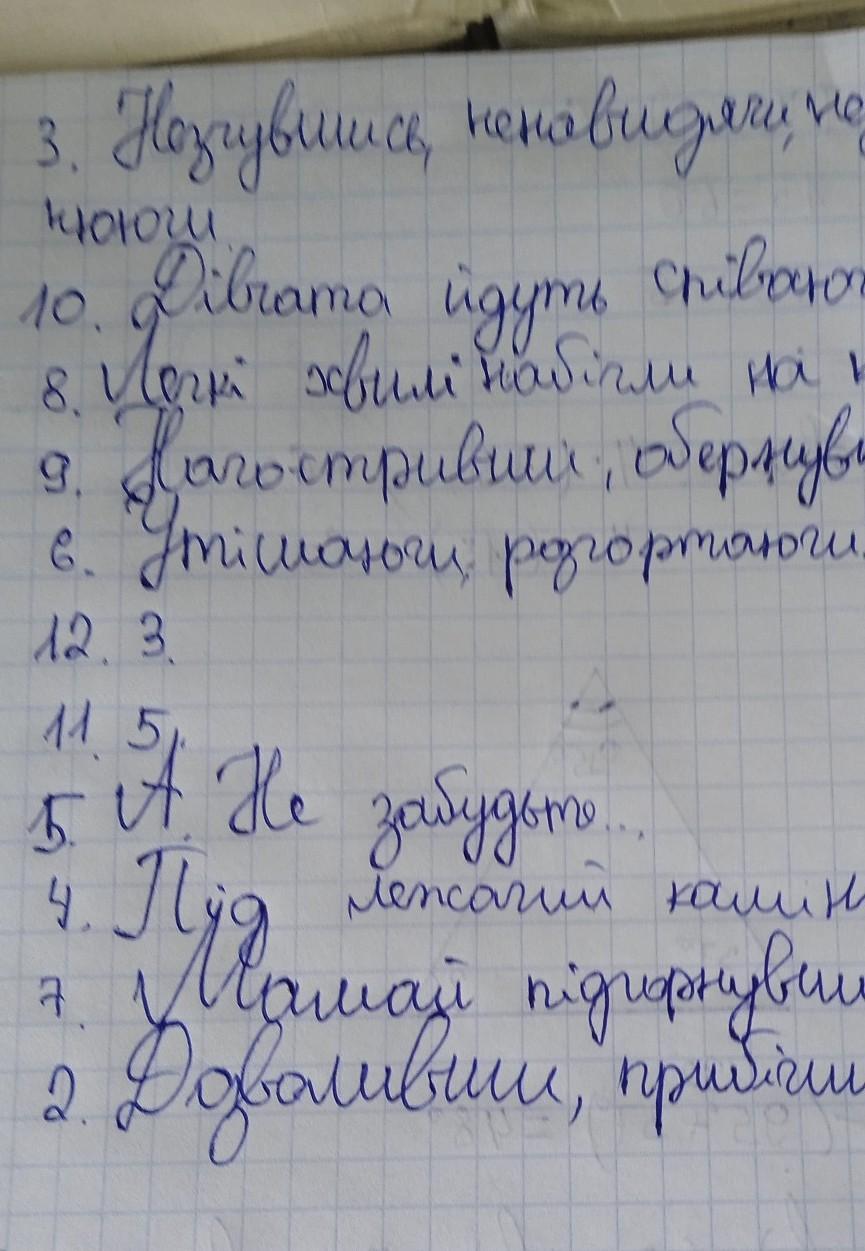 3. Незчувшись, ненавидячи, не
нюючи.
10. Дівчата йдуть співаюч
8. Легкі хвилі набігли на
9. Нагостривши, обернувш
6. Утішаючи, розгортаючи.
12. 3.
11. 5.
5. А. Не забудьте...
4. Під лежачий камін
7. Мамай підгорнувши
2. Дозволивши, прибігши